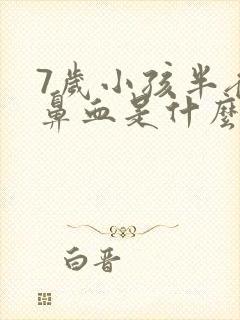 7歲小孩半
鼻血是什麼
白晋